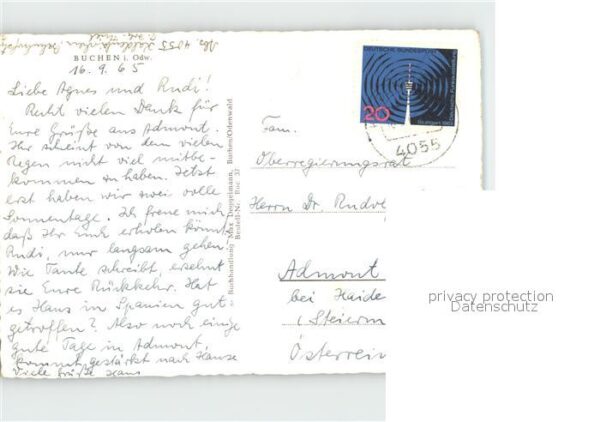 Abs. 4055
BUCHEN i. Odw.
16.9.65
Liebe Agnes und Rudi!
Recht vielen Dank für
Eure Grüße aus Admont.
Ihr scheint von dem vielen
Regen nicht viel mitbe-
kommen zu haben. Jetzt
erst haben wir zwei volle
Sonnentage. Ich freue mich,
daß Ihr Euch erholen könnt.
Rudi, nur langsam gehen.
Wie Tante schreibt, ersehnt
sie Eure Rückkehr. Hat
es Hans in Spanien gut
getroffen? Also noch einige
gute Tage in Admont,
kommt gestärkt nach Hause
Viele Grüße
Buchhandlung Max Deppelmann, Buchen/Odenwald
Bestell-Nr. Buc. 37
DEUTSCHE BUNDESPOST
20
4055
Fam.
Oberregierungsrat
Herrn Dr. Rudo
Admont
bei Haide
(Steierm
Österrei
privacy protection
Datenschutz